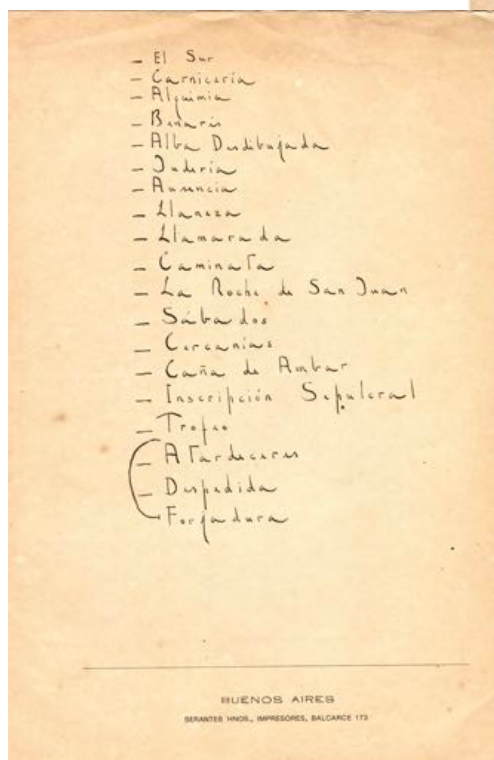 – El Sur
– Carnicería
– Alquimia
– Benarés
– Alba Desdibujada
– Judería
– Ausencia
– Llaneza
– Llamarada
– Caminata
– La Noche de San Juan
– Sábados
– Cercanías
– Caña de Ambar
– Inscripción Sepulcral
– Trofeo
– Atardeceres
– Despedida
– Forjadura
BUENOS AIRES
SERANTES HNOS., IMPRESORES, BALCARCE 173